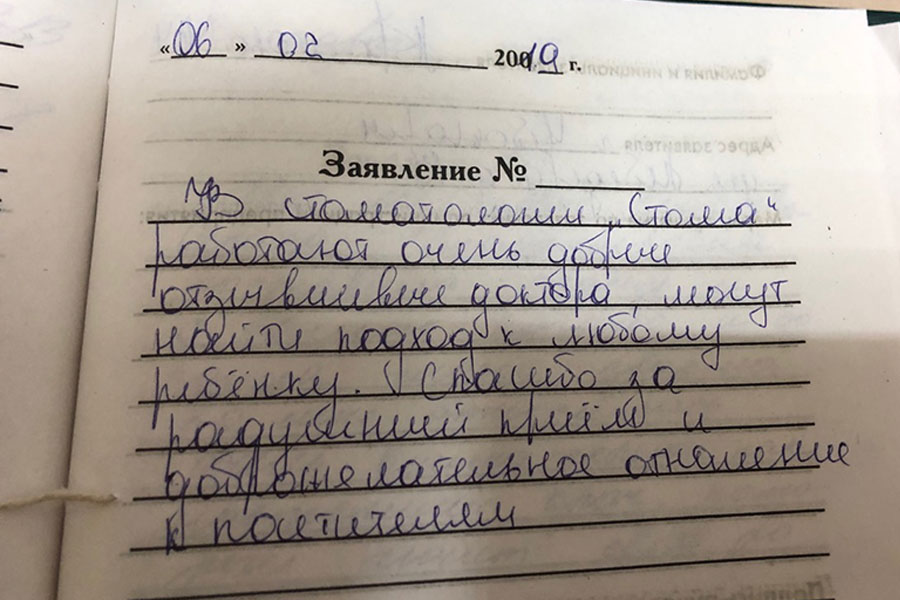 «06» 02 2019 г.
Заявление №
В стоматологии „Стома“
работают очень добрые
отзывчивые доктора, могут
найти подход к любому
ребёнку. Спасибо за
радушный приём и
доброжелательное отношение
к посетителям